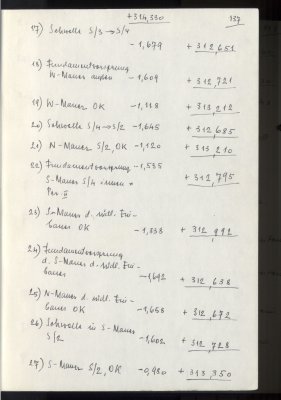 + 314,330
137
17) Schwelle S/3 → S/4
- 1,679 + 312,651
18) Fundamentvorsprung
W-Mauer außen - 1,609 + 312,721
19) W-Mauer OK - 1,118 + 313,212
20) Schwelle S/4 → S/2 - 1,645 + 312,685
21) N-Mauer S/2, OK - 1,120 + 313,210
22) Fundamentvorsprung - 1,535
S-Mauer S/4 innen + 312,795
Per. II
23) S-Mauer d. südl. Ein-
bauer OK - 1,338 + 312,992
24) Fundamentvorsprung
d. S-Mauer d. südl. Ein-
bauer - 1,692 + 312,638
25) N-Mauer d. südl. Ein-
bauer OK - 1,658 + 312,672
26) Schwelle in S-Mauer
S/2 - 1,602 + 312,728
27) S-Mauer S/2, OK - 0,980 + 313,350